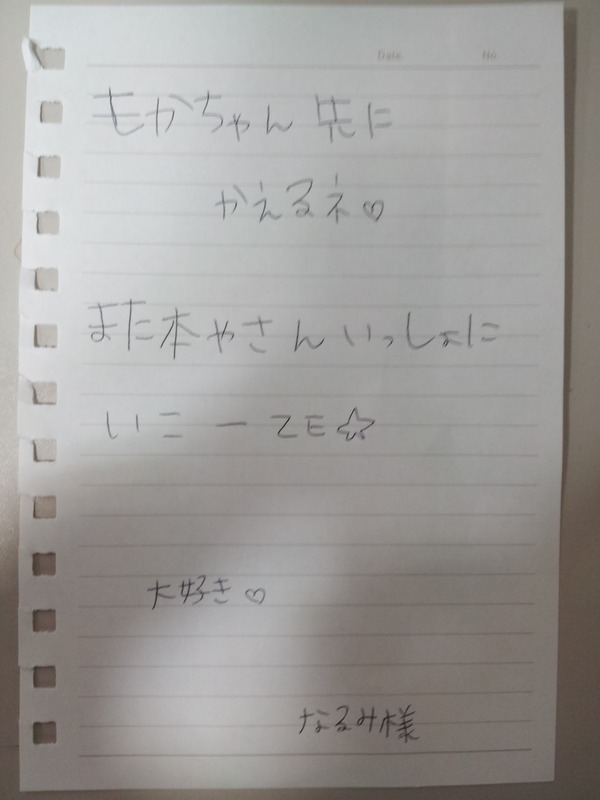 Date No
もかちゃん 先に
かえるネ♡
また本やさんいっしょに
いこーZE☆
大好き♡
なるみ様